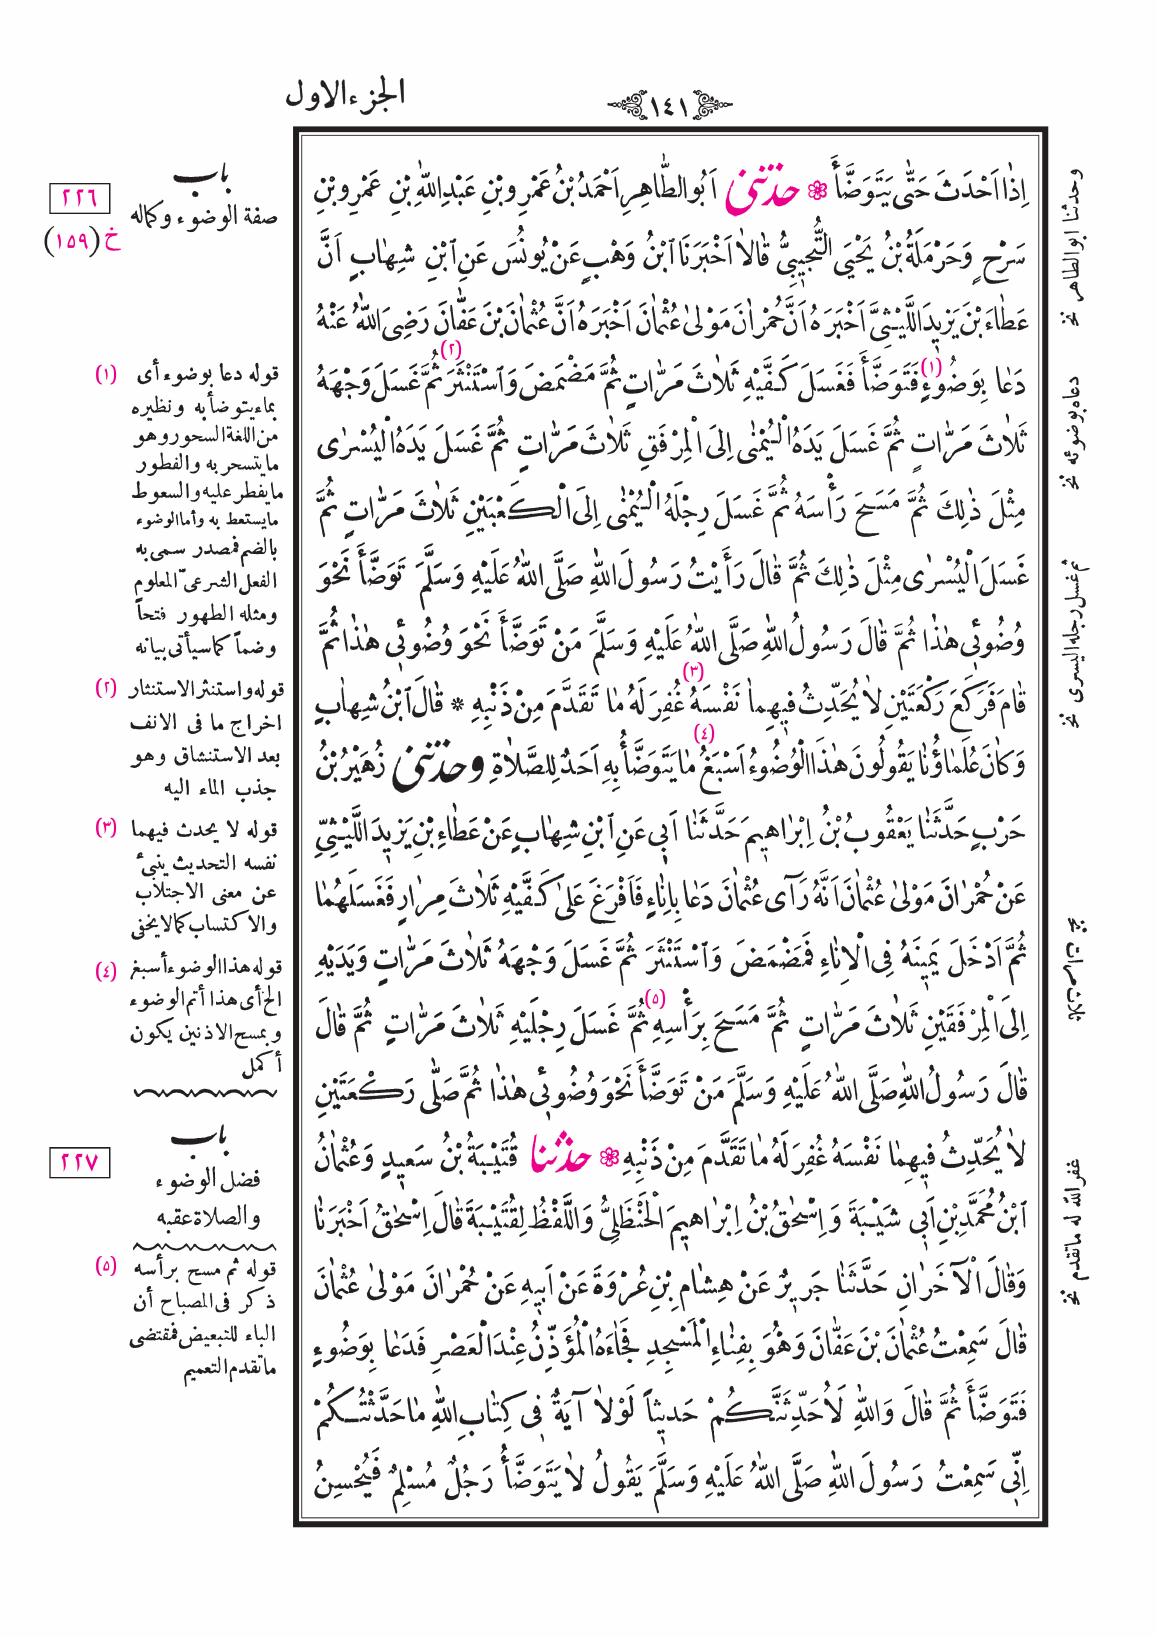 الجزء الاول
١٤١
اِذٰا اَحْدَثَ حَتّٰى يَتَوَضَّأَ ❁ حدثني اَبُو الطّٰاهِرِ اَحْمَدُ بْنُ عَمْرِو بْنِ عَبْدِاللّٰهِ بْنِ عَمْرِو بْنِ
سَرْحٍ وَحَرْمَلَةُ بْنُ يَحْيَى التُّجِيبِيُّ قٰالاٰ اَخْبَرَنَا ابْنُ وَهْبٍ عَنْ يُونُسَ عَنِ ابْنِ شِهٰابٍ اَنَّ
عَطٰاءَ بْنَ يَزِيدَ اللَّيْثِيَّ اَخْبَرَهُ اَنَّ حُمْرٰانَ مَوْلىٰ عُثْمٰانَ اَخْبَرَهُ اَنَّ عُثْمٰانَ بْنَ عَفّٰانَ رَضِىَ اللّٰهُ عَنْهُ
دَعٰا بِوَضُوءٍ (١) فَتَوَضَّأَ فَغَسَلَ كَفَّيْهِ ثَلاٰثَ مَرّٰاتٍ ثُمَّ مَضْمَضَ وَاسْتَنْثَرَ (٢) ثُمَّ غَسَلَ وَجْهَهُ
ثَلاٰثَ مَرّٰاتٍ ثُمَّ غَسَلَ يَدَهُ الْيُمْنٰى اِلَى الْمِرْفَقِ ثَلاٰثَ مَرّٰاتٍ ثُمَّ غَسَلَ يَدَهُ الْيُسْرٰى
مِثْلَ ذٰلِكَ ثُمَّ مَسَحَ رَأْسَهُ ثُمَّ غَسَلَ رِجْلَهُ الْيُمْنٰى اِلَى الْكَعْبَيْنِ ثَلاٰثَ مَرّٰاتٍ ثُمَّ
غَسَلَ الْيُسْرٰى مِثْلَ ذٰلِكَ ثُمَّ قٰالَ رَأَيْتُ رَسُولَ اللّٰهِ صَلَّى اللّٰهُ عَلَيْهِ وَسَلَّمَ تَوَضَّأَ نَحْوَ
وُضُوئِى هٰذٰا ثُمَّ قٰالَ رَسُولُ اللّٰهِ صَلَّى اللّٰهُ عَلَيْهِ وَسَلَّمَ مَنْ تَوَضَّأَ نَحْوَ وُضُوئِى هٰذٰا ثُمَّ
قٰامَ فَرَكَعَ رَكْعَتَيْنِ لاٰ يُحَدِّثُ فِيهِمٰا نَفْسَهُ (٣) غُفِرَ لَهُ مٰا تَقَدَّمَ مِنْ ذَنْبِهِ * قٰالَ ابْنُ شِهٰابٍ
وَكٰانَ عُلَمٰاؤُنٰا يَقُولُونَ هٰذَا الْوُضُوءُ اَسْبَغُ (٤) مٰا يَتَوَضَّأُ بِهِ اَحَدٌ لِلصَّلاٰةِ وحدثني زُهَيْرُ بْنُ
حَرْبٍ حَدَّثَنٰا يَعْقُوبُ بْنُ اِبْرٰاهِيمَ حَدَّثَنٰا اَبِى عَنِ ابْنِ شِهٰابٍ عَنْ عَطٰاءِ بْنِ يَزِيدَ اللَّيْثِيِّ
عَنْ حُمْرٰانَ مَوْلىٰ عُثْمٰانَ اَنَّهُ رَآى عُثْمٰانَ دَعٰا بِاِنٰاءٍ فَاَفْرَغَ عَلىٰ كَفَّيْهِ ثَلاٰثَ مِرٰارٍ فَغَسَلَهُمٰا
ثُمَّ اَدْخَلَ يَمِينَهُ فِى الْاِنٰاءِ فَمَضْمَضَ وَاسْتَنْثَرَ ثُمَّ غَسَلَ وَجْهَهُ ثَلاٰثَ مَرّٰاتٍ وَيَدَيْهِ
اِلَى الْمِرْفَقَيْنِ ثَلاٰثَ مَرّٰاتٍ ثُمَّ مَسَحَ بِرَأْسِهِ (٥) ثُمَّ غَسَلَ رِجْلَيْهِ ثَلاٰثَ مَرّٰاتٍ ثُمَّ قٰالَ
قٰالَ رَسُولُ اللّٰهِ صَلَّى اللّٰهُ عَلَيْهِ وَسَلَّمَ مَنْ تَوَضَّأَ نَحْوَ وُضُوئِى هٰذٰا ثُمَّ صَلّٰى رَكْعَتَيْنِ
لاٰ يُحَدِّثُ فِيهِمٰا نَفْسَهُ غُفِرَ لَهُ مٰا تَقَدَّمَ مِنْ ذَنْبِهِ ❁ حدثنا قُتَيْبَةُ بْنُ سَعِيدٍ وَعُثْمٰانُ
ابْنُ مُحَمَّدِ بْنِ اَبِى شَيْبَةَ وَ اِسْحٰقُ بْنُ اِبْرٰاهِيمَ الْحَنْظَلِيُّ وَاللَّفْظُ لِقُتَيْبَةَ قٰالَ اِسْحٰقُ اَخْبَرَنٰا
وَقٰالَ الْآخَرٰانِ حَدَّثَنٰا جَرِيرٌ عَنْ هِشٰامِ بْنِ عُرْوَةَ عَنْ اَبِيهِ عَنْ حُمْرٰانَ مَوْلىٰ عُثْمٰانَ
قٰالَ سَمِعْتُ عُثْمٰانَ بْنَ عَفّٰانَ وَهُوَ بِفِنٰاءِ الْمَسْجِدِ فَجٰاءَهُ الْمُؤَذِّنُ عِنْدَ الْعَصْرِ فَدَعٰا بِوَضُوءٍ
فَتَوَضَّأَ ثُمَّ قٰالَ وَاللّٰهِ لَاُحَدِّثَنَّكُمْ حَدِيثاً لَوْلاٰ آيَةٌ فِى كِتٰابِ اللّٰهِ مٰا حَدَّثْتُكُمْ
اِنِّى سَمِعْتُ رَسُولَ اللّٰهِ صَلَّى اللّٰهُ عَلَيْهِ وَسَلَّمَ يَقُولُ لاٰ يَتَوَضَّأُ رَجُلٌ مُسْلِمٌ فَيُحْسِنُ
وحدثنا ابوالطاهر نخ
دعاه بوضوئه نخ
ثم غسل رجله اليسرى نخ
ثلاث مرات نخ
غفر الله له ماتقدم نخ
٢٢٦
خ (١٥٩)
باب
صفة الوضوء وكماله
(١) قوله دعا بوضوء أى
بماء يتوضأ به ونظيره
من اللغة السحور وهو
مايتسحر به والفطور
مايفطر عليه والسعوط
مايستعط به وأما الوضوء
بالضم فمصدر سمى به
الفعل الشرعىّ المعلوم
ومثله الطهور فتحاً
وضماً كما سيأتى بيانه
(٢) قوله واستنثر الاستنثار
اخراج ما فى الانف
بعد الاستنشاق وهو
جذب الماء اليه
(٣) قوله لا يحدث فيهما
نفسه التحديث ينبىء
عن معنى الاجتلاب
والاكتساب كما لايخفى
(٤) قوله هذا الوضوء أسبغ
الخ أى هذا أتم الوضوء
وبمسح الاذنين يكون
أكمل
٢٢٧
باب
فضل الوضوء
والصلاة عقبه
(٥) قوله ثم مسح برأسه
ذكر فى المصباح أن
الباء للتبعيض فمقتضى
ماتقدم التعميم